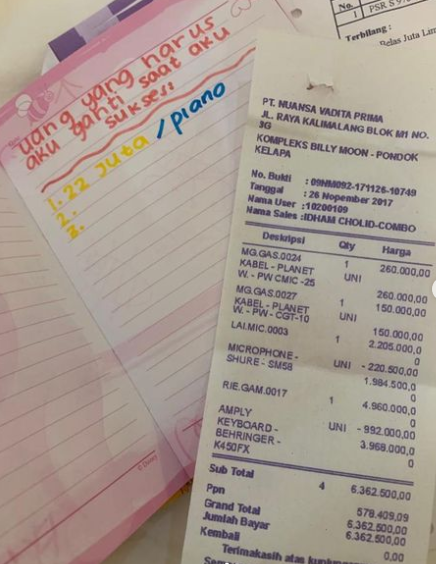 uang yang harus
aku ganti saat aku
sukses:
1. 22 Juta / piano
2.
3.
No.
1 PSR S 9
Terbilang :
Belas Juta Lim
PT. NUANSA VADITA PRIMA
JL. RAYA KALIMALANG BLOK M1 NO.
3G
KOMPLEKS BILLY MOON - PONDOK
KELAPA
No. Bukti : 09NM092-171126-10749
Tanggal : 26 Nopember 2017
Nama User : 10200109
Nama Sales : IDHAM CHOLID-COMBO
Deskripsi Qty Harga
MG.GAS.0024 1 260.000,00
KABEL - PLANET UNI
W. - PW CMIC -25 260.000,00
MG.GAS.0027 1 150.000,00
KABEL - PLANET UNI
W. - PW - CGT-10 150.000,00
LAI.MIC.0003 1 2.205.000,0
0
MICROPHONE - UNI - 220.500,00
SHURE - SM58 1.984.500,0
0
RIE.GAM.0017 1 4.960.000,0
0
AMPLY UNI - 992.000,00
KEYBOARD - 3.968.000,0
BEHRINGER - 0
K450FX
Sub Total 4 6.362.500,00
Ppn 578.409,09
Grand Total 6.362.500,00
Jumlah Bayar 6.362.500,00
Kembali 0,00
Terimakasih atas
© Disney